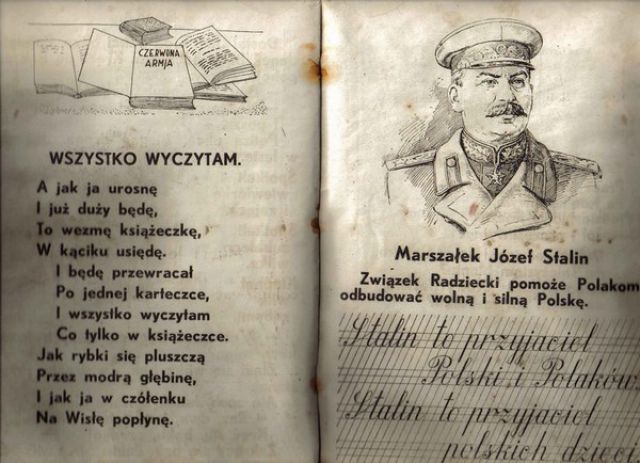 CZERWONA
ARMJA
WSZYSTKO WYCZYTAM.
A jak ja urosnę
I już duży będę,
To wezmę książeczkę,
W kąciku usiędę.
I będę przewracał
Po jednej karteczce,
I wszystko wyczytam
Co tylko w książeczce.
Jak rybki się pluszczą
Przez modrą głębinę,
I jak ja w czółenku
Na Wisłę popłynę.
Marszałek Józef Stalin
Związek Radziecki pomoże Polakom
odbudować wolną i silną Polskę.
Stalin to przyjaciel
Polski i Polaków
Stalin to przyjaciel
polskich dzieci